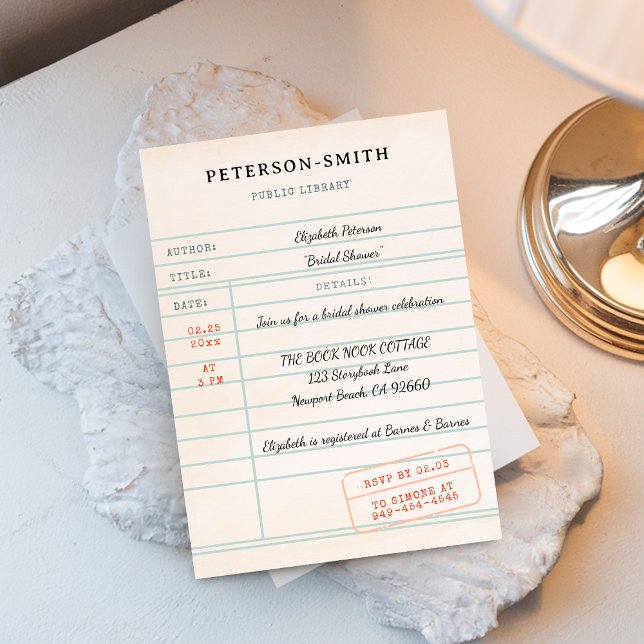 PETERSON-SMITH
PUBLIC LIBRARY
AUTHOR: Elizabeth Peterson
TITLE: "Bridal Shower"
DATE: DETAILS:
02.25
20xx
AT
3 PM
Join us for a bridal shower celebration
THE BOOK NOOK COTTAGE
123 Storybook Lane
Newport Beach, CA 92660
Elizabeth is registered at Barnes & Barnes
RSVP BY 02.03
TO SIMONE AT
949-454-4545